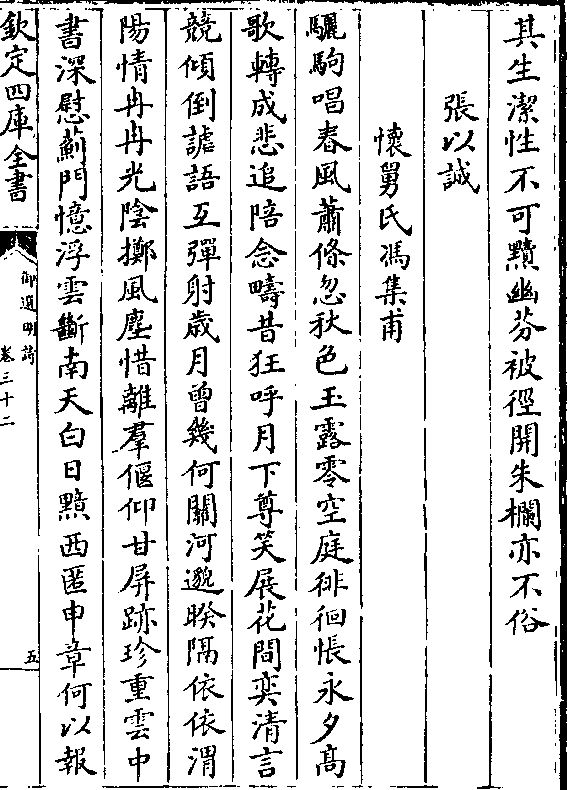 其生潔性不可黷幽芬被徑開朱欄亦不俗
張以誠
懷舅氏馮集甫
驪駒唱春風蕭條忽秋色玉露零空庭徘徊悵永夕髙
歌轉成悲追陪念疇昔狂呼月下尊笑展花間奕清言
競傾倒謔語互彈射歲月曾幾何關河邈暌隔依依渭
陽情冉冉光陰擲風塵惜離羣偃仰甘屏跡珍重雲中
書深慰薊門憶浮雲斷南天白日黯西匿申章何以報
欽定四庫全書
御選明詩
卷三十二
五